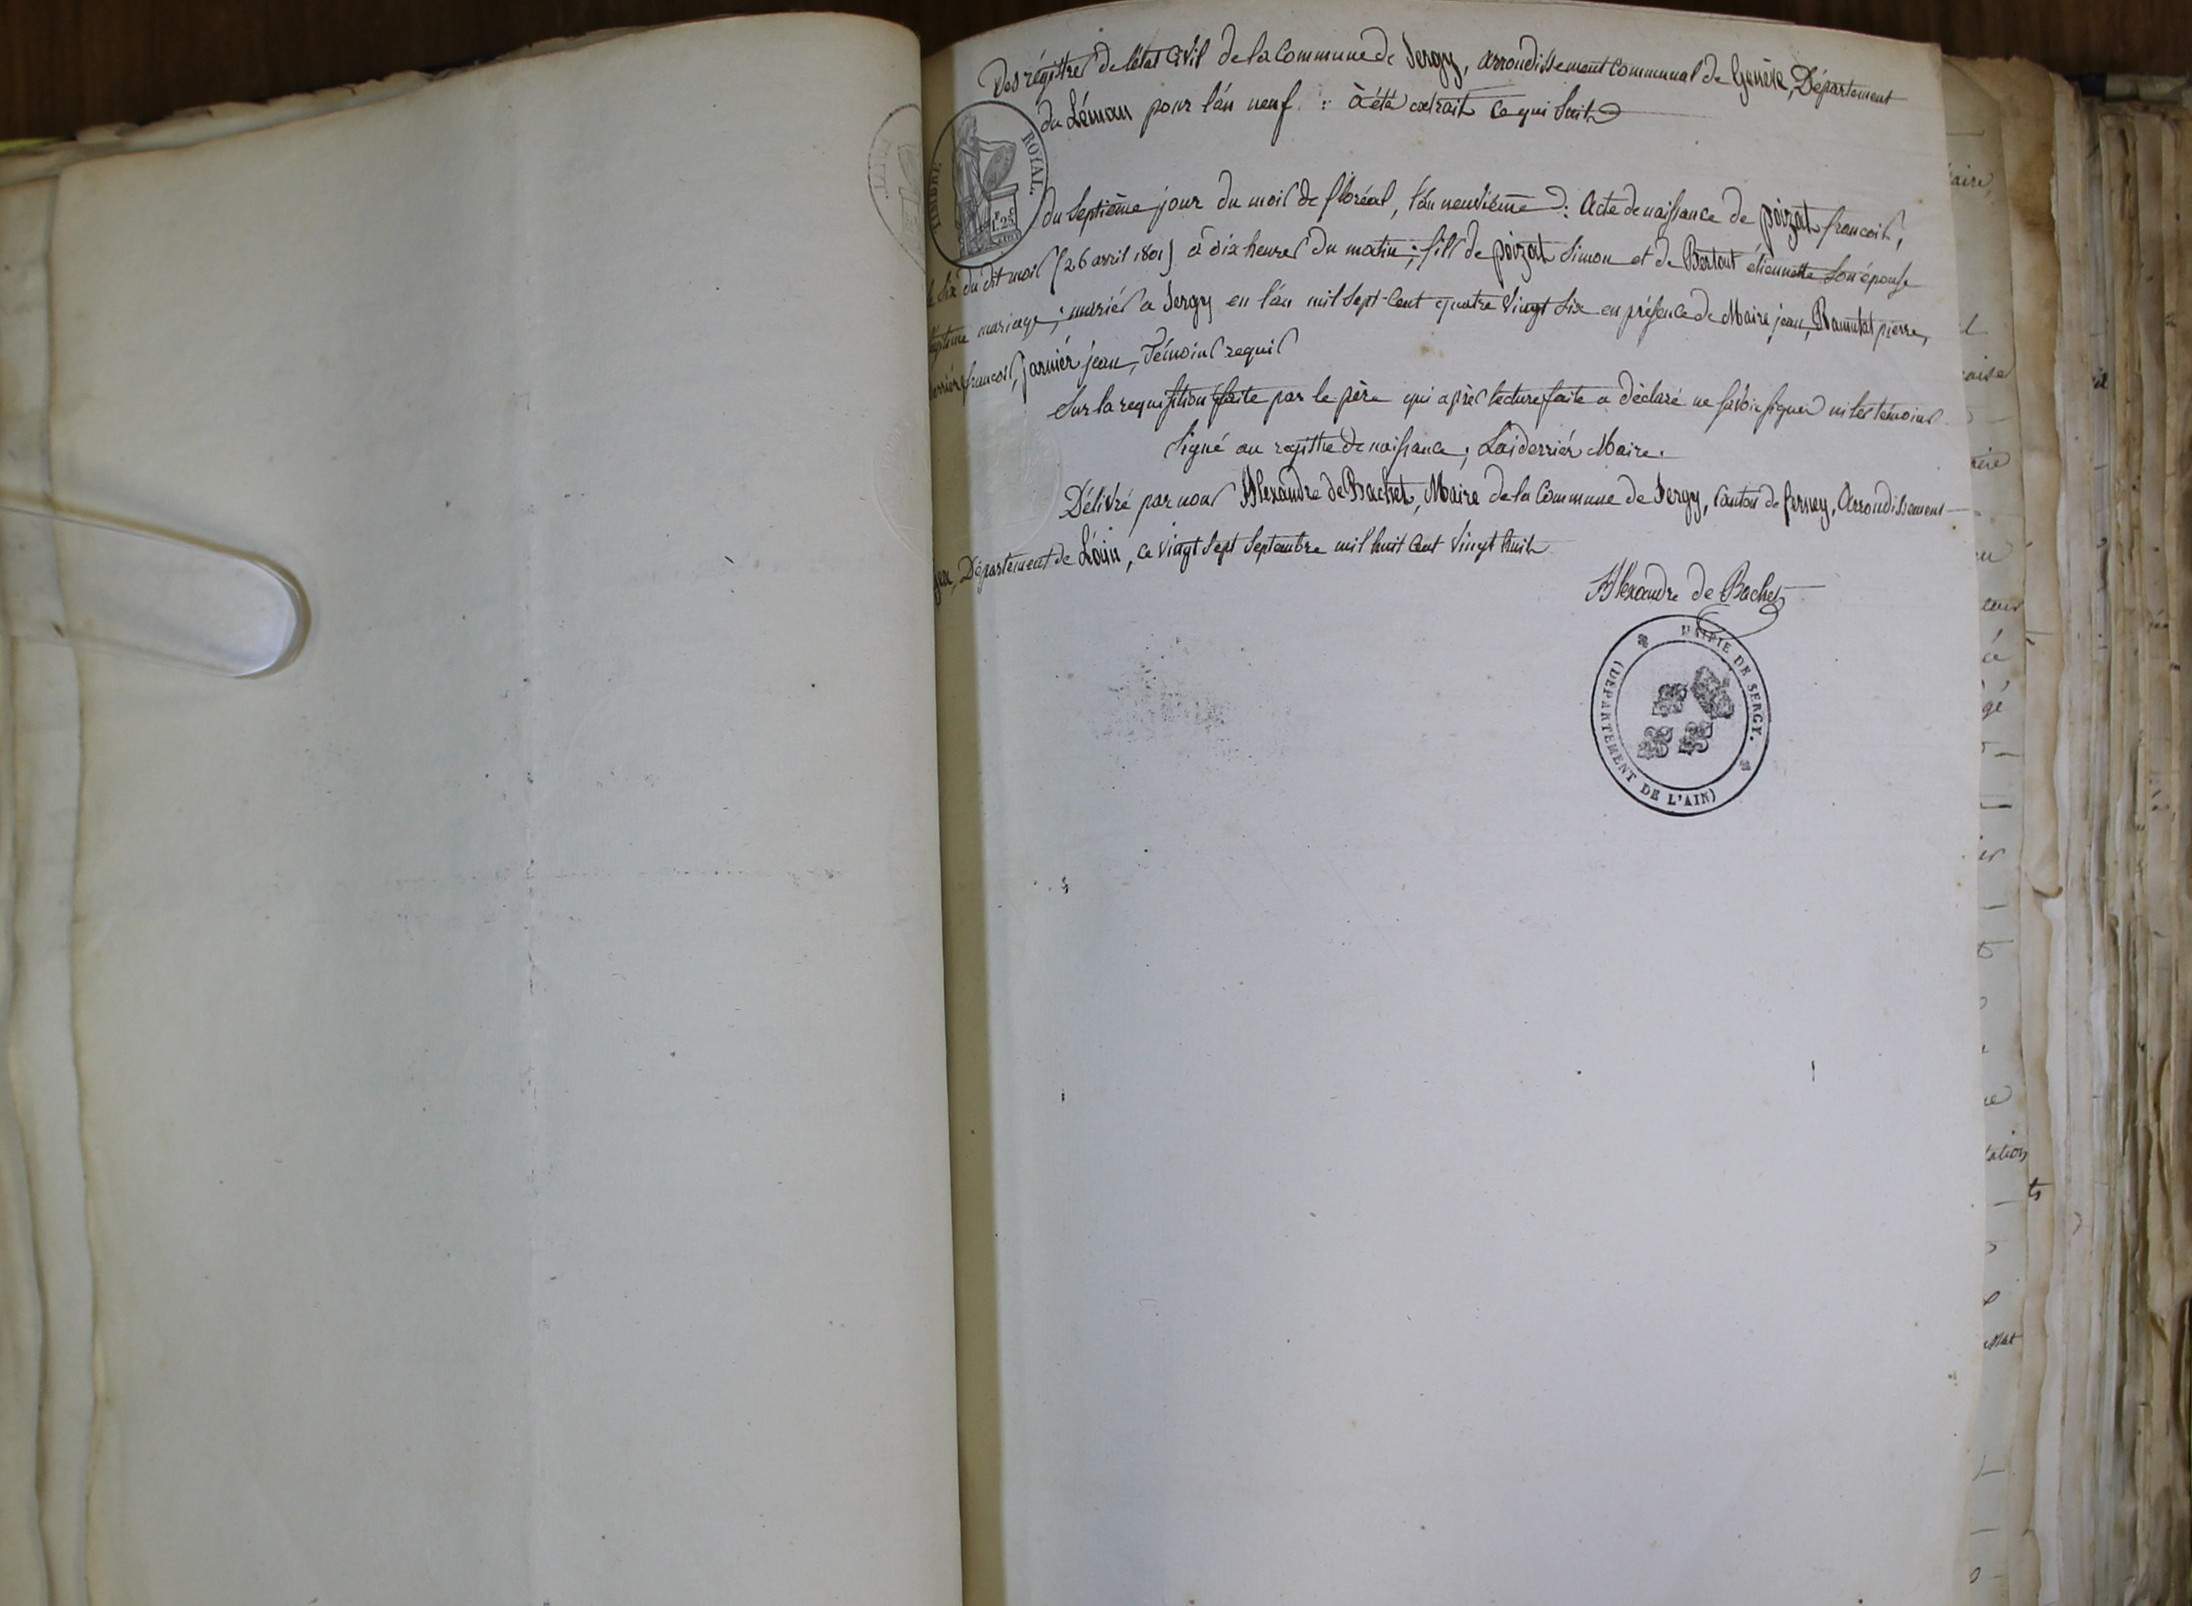 Des régistres de l'état Civil de la Commune de Sergy, arrondissement Communal de Genève, Département
du Léman pour l'án neuf : à été extrait ce qui suit
TIMBRE ROYAL.
du Septième jour du mois de floréal, l'án neuvième : Acte de naissance de poizat francois,
le six du dit mois (26 avril 1801) à dix heures du matin ; fils de poizat Simon et de Bertout étiennette son épouse
légitime mariage ; mariés a Sergy en l'án mil Sept-Cent quatre vingt Six en présence de Maire jean, pierre,
francois, jean, témoins requis
Sur la requisition faite par le père qui après lecture faite a déclaré ne savoir signer ni les témoins
Signé au registre de naissance ; Laiderriér Maire.
Délivré par nous Alexandre de Bachet, Maire de la Commune de Sergy, Canton de ferney, Arrondissement
gex, Département de L'áin, ce vingt Sept Septembre mil huit Cent vingt huit
Alexandre de Bachet
MAIRIE DE SERGY.
(DÉPARTEMENT DE L'AIN)